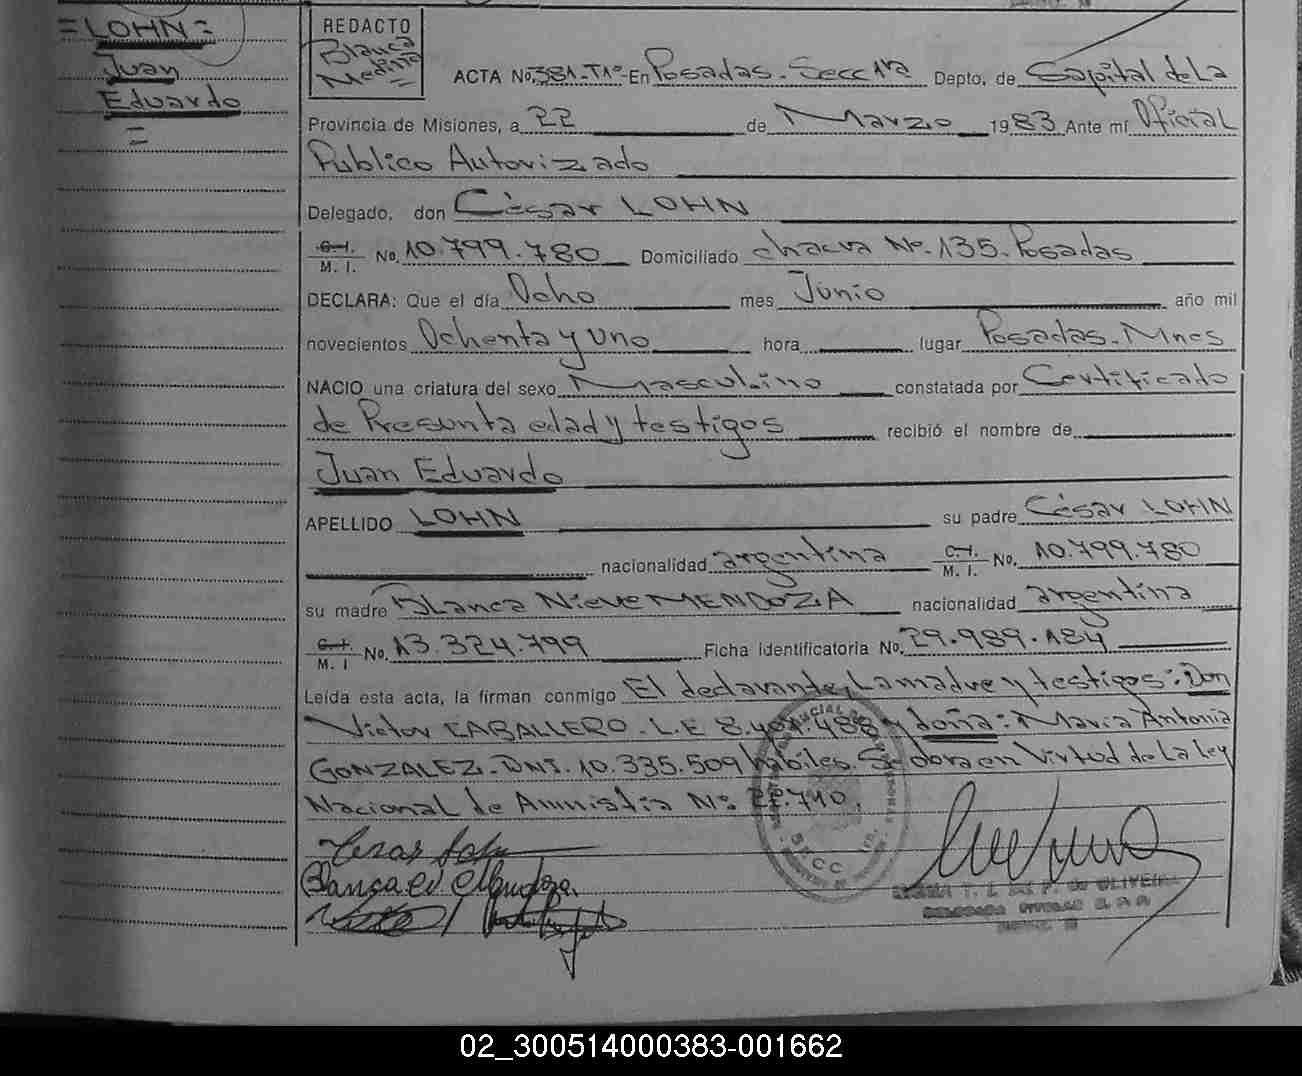 =LOHN=
Juan
Eduardo
=
REDACTO
Blanca
Medina
=
ACTA No. 381-T1º- En Posadas. Secc 1ra Depto. de Capital de La
Provincia de Misiones, a 22 de Marzo 1983 Ante mí Oficial
Publico Autorizado
Delegado, don César LOHN
C.I. M. I. No. 10.799.780 Domiciliado chacra Nº. 135. Posadas
DECLARA: Que el día Ocho mes Junio año mil
novecientos Ochenta y uno hora lugar Posadas. Mnes
NACIO una criatura del sexo Masculino constatada por Certificado
de Presunta edad y testigos recibió el nombre de
Juan Eduardo
APELLIDO LOHN su padre César LOHN
nacionalidad argentina C.I. M. I. No. 10.799.780
su madre Blanca Nieve MENDOZA nacionalidad argentina
C.I. M. I No. 13.324.799 Ficha identificatoria No. 29.989.184
Leída esta acta, la firman conmigo El declarante, La madre y testigos: Don
Victor CABALLERO. L.E 8.401.488 y doña: Maria Antonia
GONZALEZ. DNI. 10.335.509 habiles. Se obra en Virtud de La Ley
Nacional de Amnistia Nº: 22.710.
SECC 1ra.
DE OLIVEIRA
DELEGADA TITULAR
02_300514000383-001662